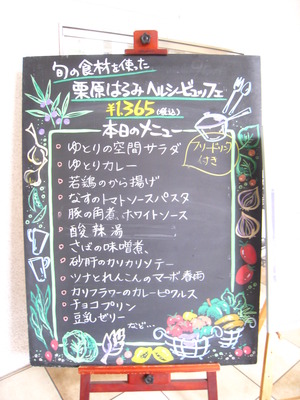 旬の食材を使った
栗原はるみ ヘルシービュッフェ
¥1.365(税込)
本日のメニュー
フリードリンク
付き
ゆとりの空間サラダ
ゆとりカレー
若鶏のから揚げ
なすのトマトソースパスタ
豚の角煮、ホワイトソース
酸辣湯
さばの味噌煮、
砂肝のカリカリソテー
ツナとれんこんのマーボ春雨
カリフラワーのカレーピクルス
チョコプリン
豆乳ゼリー
など…